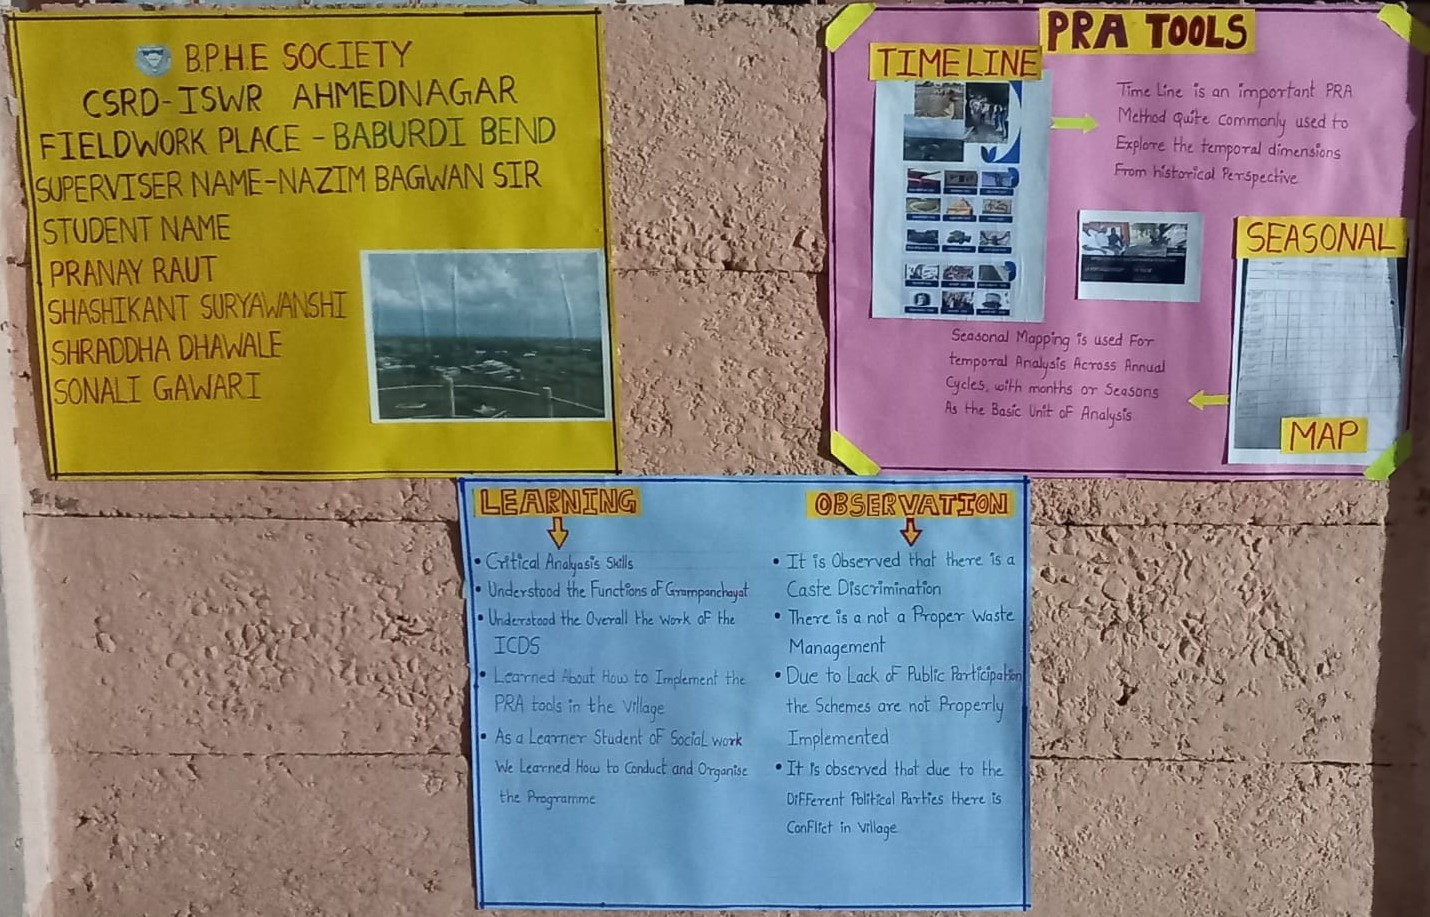 B.P.H.E SOCIETY
CSRD-ISWR AHMEDNAGAR
FIELDWORK PLACE - BABURDI BEND
SUPERVISER NAME-NAZIM BAGWAN SIR
STUDENT NAME
PRANAY RAUT
SHASHIKANT SURYAWANSHI
SHRADDHA DHAWALE
SONALI GAWARI
PRA TOOLS
TIME LINE
Time Line is an important PRA
Method quite commonly used to
Explore the temporal dimensions
From historical Perspective
SEASONAL
MAP
Seasonal Mapping is used For
temporal Analysis Across Annual
Cycles, with months or Seasons
As the Basic Unit of Analysis
LEARNING
• Critical Analyasis Skills
• Understood the Functions of Grampanchayat
• Understood the Overall the Work of the
ICDS
• Learned About How to Implement the
PRA tools in the Village
• As a Learner Student of Social work
We Learned How to Conduct and Organise
the Programme
OBSERVATION
• It is Observed that there is a
Caste Discrimination
• There is a not a Proper Waste
Management
• Due to Lack of Public Participation
the Schemes are not Properly
Implemented
• It is observed that due to the
Different Political Parties there is
Conflict in Village